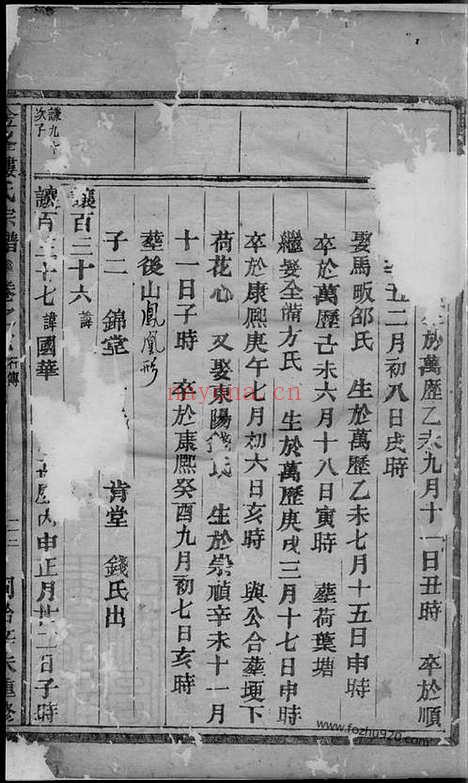 於萬歷乙未九月十一日丑時 卒於順
二月初八日戌時
娶馬畈郤氏 生於萬歷乙未七月十五日申時
卒於萬歷己未六月十八日寅時 塟荷葉塘
繼娶全備方氏 生於萬歷庚戌三月十七日申時
卒於康熙庚午七月初六日亥時 與公合塟埂下
荷花心 又娶東陽錢氏 生於崇禎辛未十一月
十一日子時 卒於康熙癸酉九月初七日亥時
塟後山鳳凰形
子二 錦堂 肯堂 錢氏出
百三十六 諱
謙九
次子
百三十七 諱國華 丙申正月廿二日子時
氏宗譜 卷 行傳 同治辛未重修
nayona.cn
www.fozhu920.com